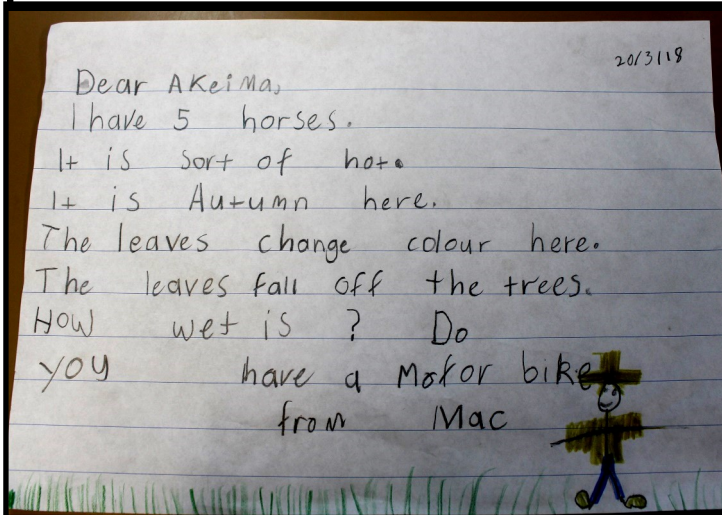 20/3/18
Dear AKeiMa,
I have 5 horses.
It is sort of hot.
It is Autumn here.
The leaves change colour here.
The leaves fall off the trees.
HOW wet is ? Do
you have a Motor bike
from Mac